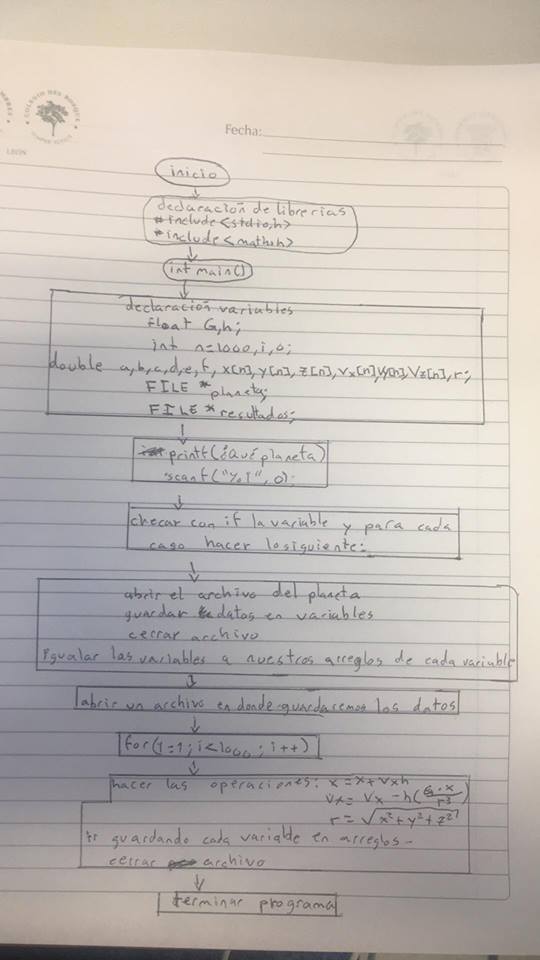 COLEGIO DEL BOSQUE
LEON
Fecha:
inicio
declaración de librerias
#include<stdio.h>
#include<math.h>
int main()
declaración variables
float G,h;
int n=1000,i,o;
double a,b,c,d,e,f, x[n],y[n],z[n],Vx[n],Vy[n],Vz[n],r;
FILE *planeta;
FILE *resultados;
printf(¿Qué planeta)
scanf("%i",o);
checar con if la variable y para cada
caso hacer lo siguiente:
abrir el archivo del planeta
guardar datos en variables
cerrar archivo
igualar las variables a nuestros arreglos de cada variable
abrir un archivo en donde guardaremos los datos
for(i=1;i<1000;i++)
hacer las operaciones: x=x+Vxh
Vx=Vx-h(G·x/r³)
r=√x²+y²+z²
Ir guardando cada variable en arreglos-
cerrar archivo
terminar programa